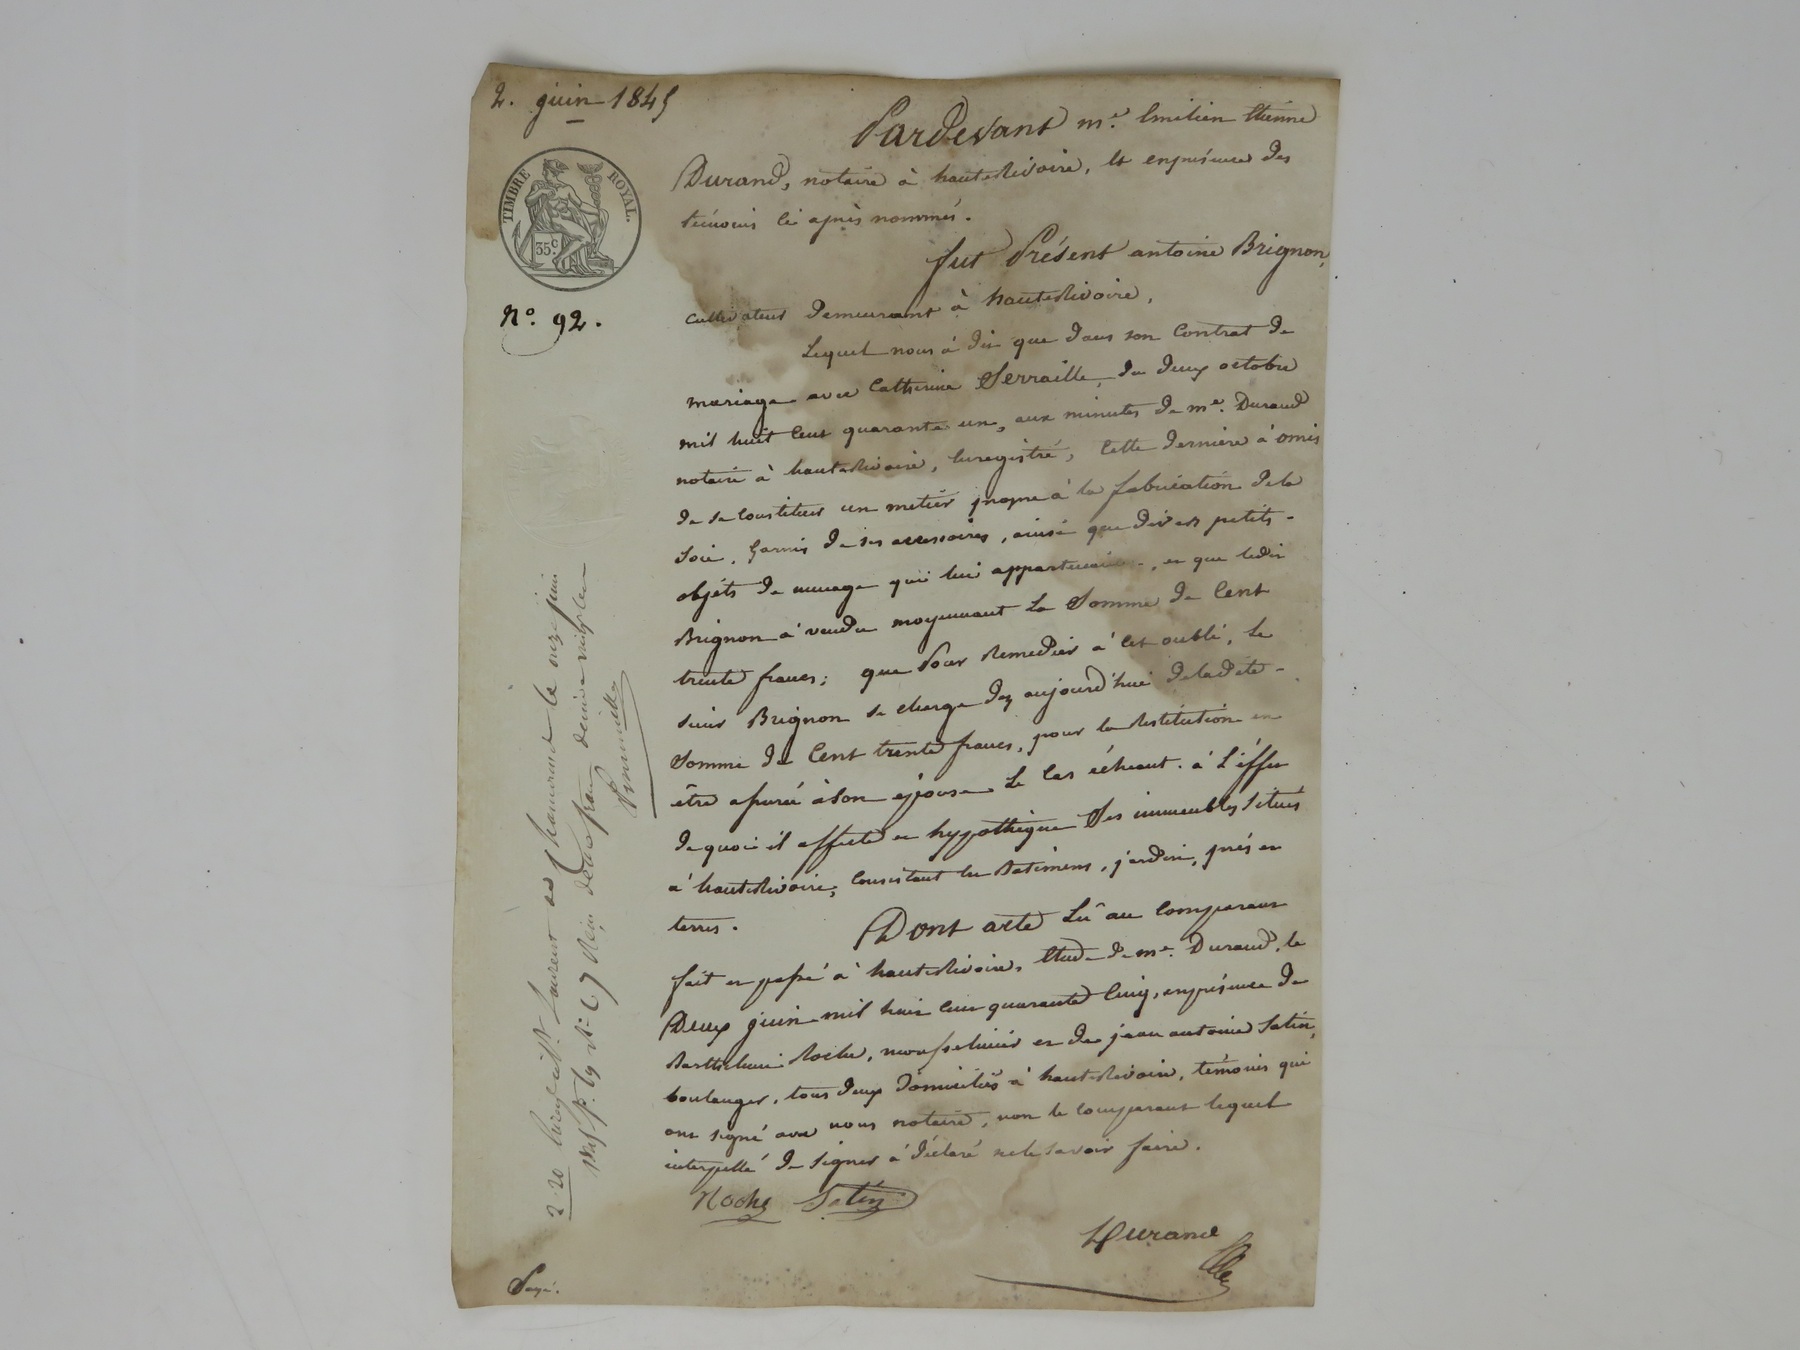 2. juin 1845
TIMBRE ROYAL.
35 c.
N.o 92.
Pardevant m.e Emilien Etienne
Durand, notaire à hauterivoire, et enprésence des
témoins ci après nommés.
fut Présent antoine Brignon,
cultivateur demeurant à hauterivoire,
Lequel nous à dit que dans son Contrat de
mariage avec Catherine Serraille, du deux octobre
mil huit Cent quarante un, aux minutes de m.e Durand
notaire à hauterivoire, Enregistré, Cette dernière à omis
de se Constituer un metier propre à la fabrication dela
soie, Garnis de ses accessoires, ainsi que divers petits
objéts de menage qui lui appartenaient, et que ledit
Brignon à vendu moyennant la Somme de Cent
trente francs; que Pour Remedier à Cet oubli, le
sieur Brignon se charge dez aujourd'hui deladite
Somme de Cent trente francs, pour la Restitution en
être assurée àson épouse Le Cas échéant. à L'éffet
de quoi il affecte et hypothèque Ses immeubles Situés
à hauterivoire, Consistant En Batimens, jardin, prés et
terres.
Dont acte Lû au Comparant
fait et passé à hauterivoire, Etude de m.e Durand, le
Deux juin mil huit Cent quarante Cinq, enprésence de
Barthelemi Roche, mousselinier et de jean antoine Satin,
boulanger, tous deux domiciliés à hauterivoire, témoins qui
ont signé avec nous notaire, non le Comparant lequel
interpellé de signer à déclaré nele savoir faire.
Roche Satin
Durand
Enregistré à St Laurent de Chamousset le onze juin
1845 f.o 69 Ro C 7 Reçu deux francs dixième vingt cent
2-20
Payé.